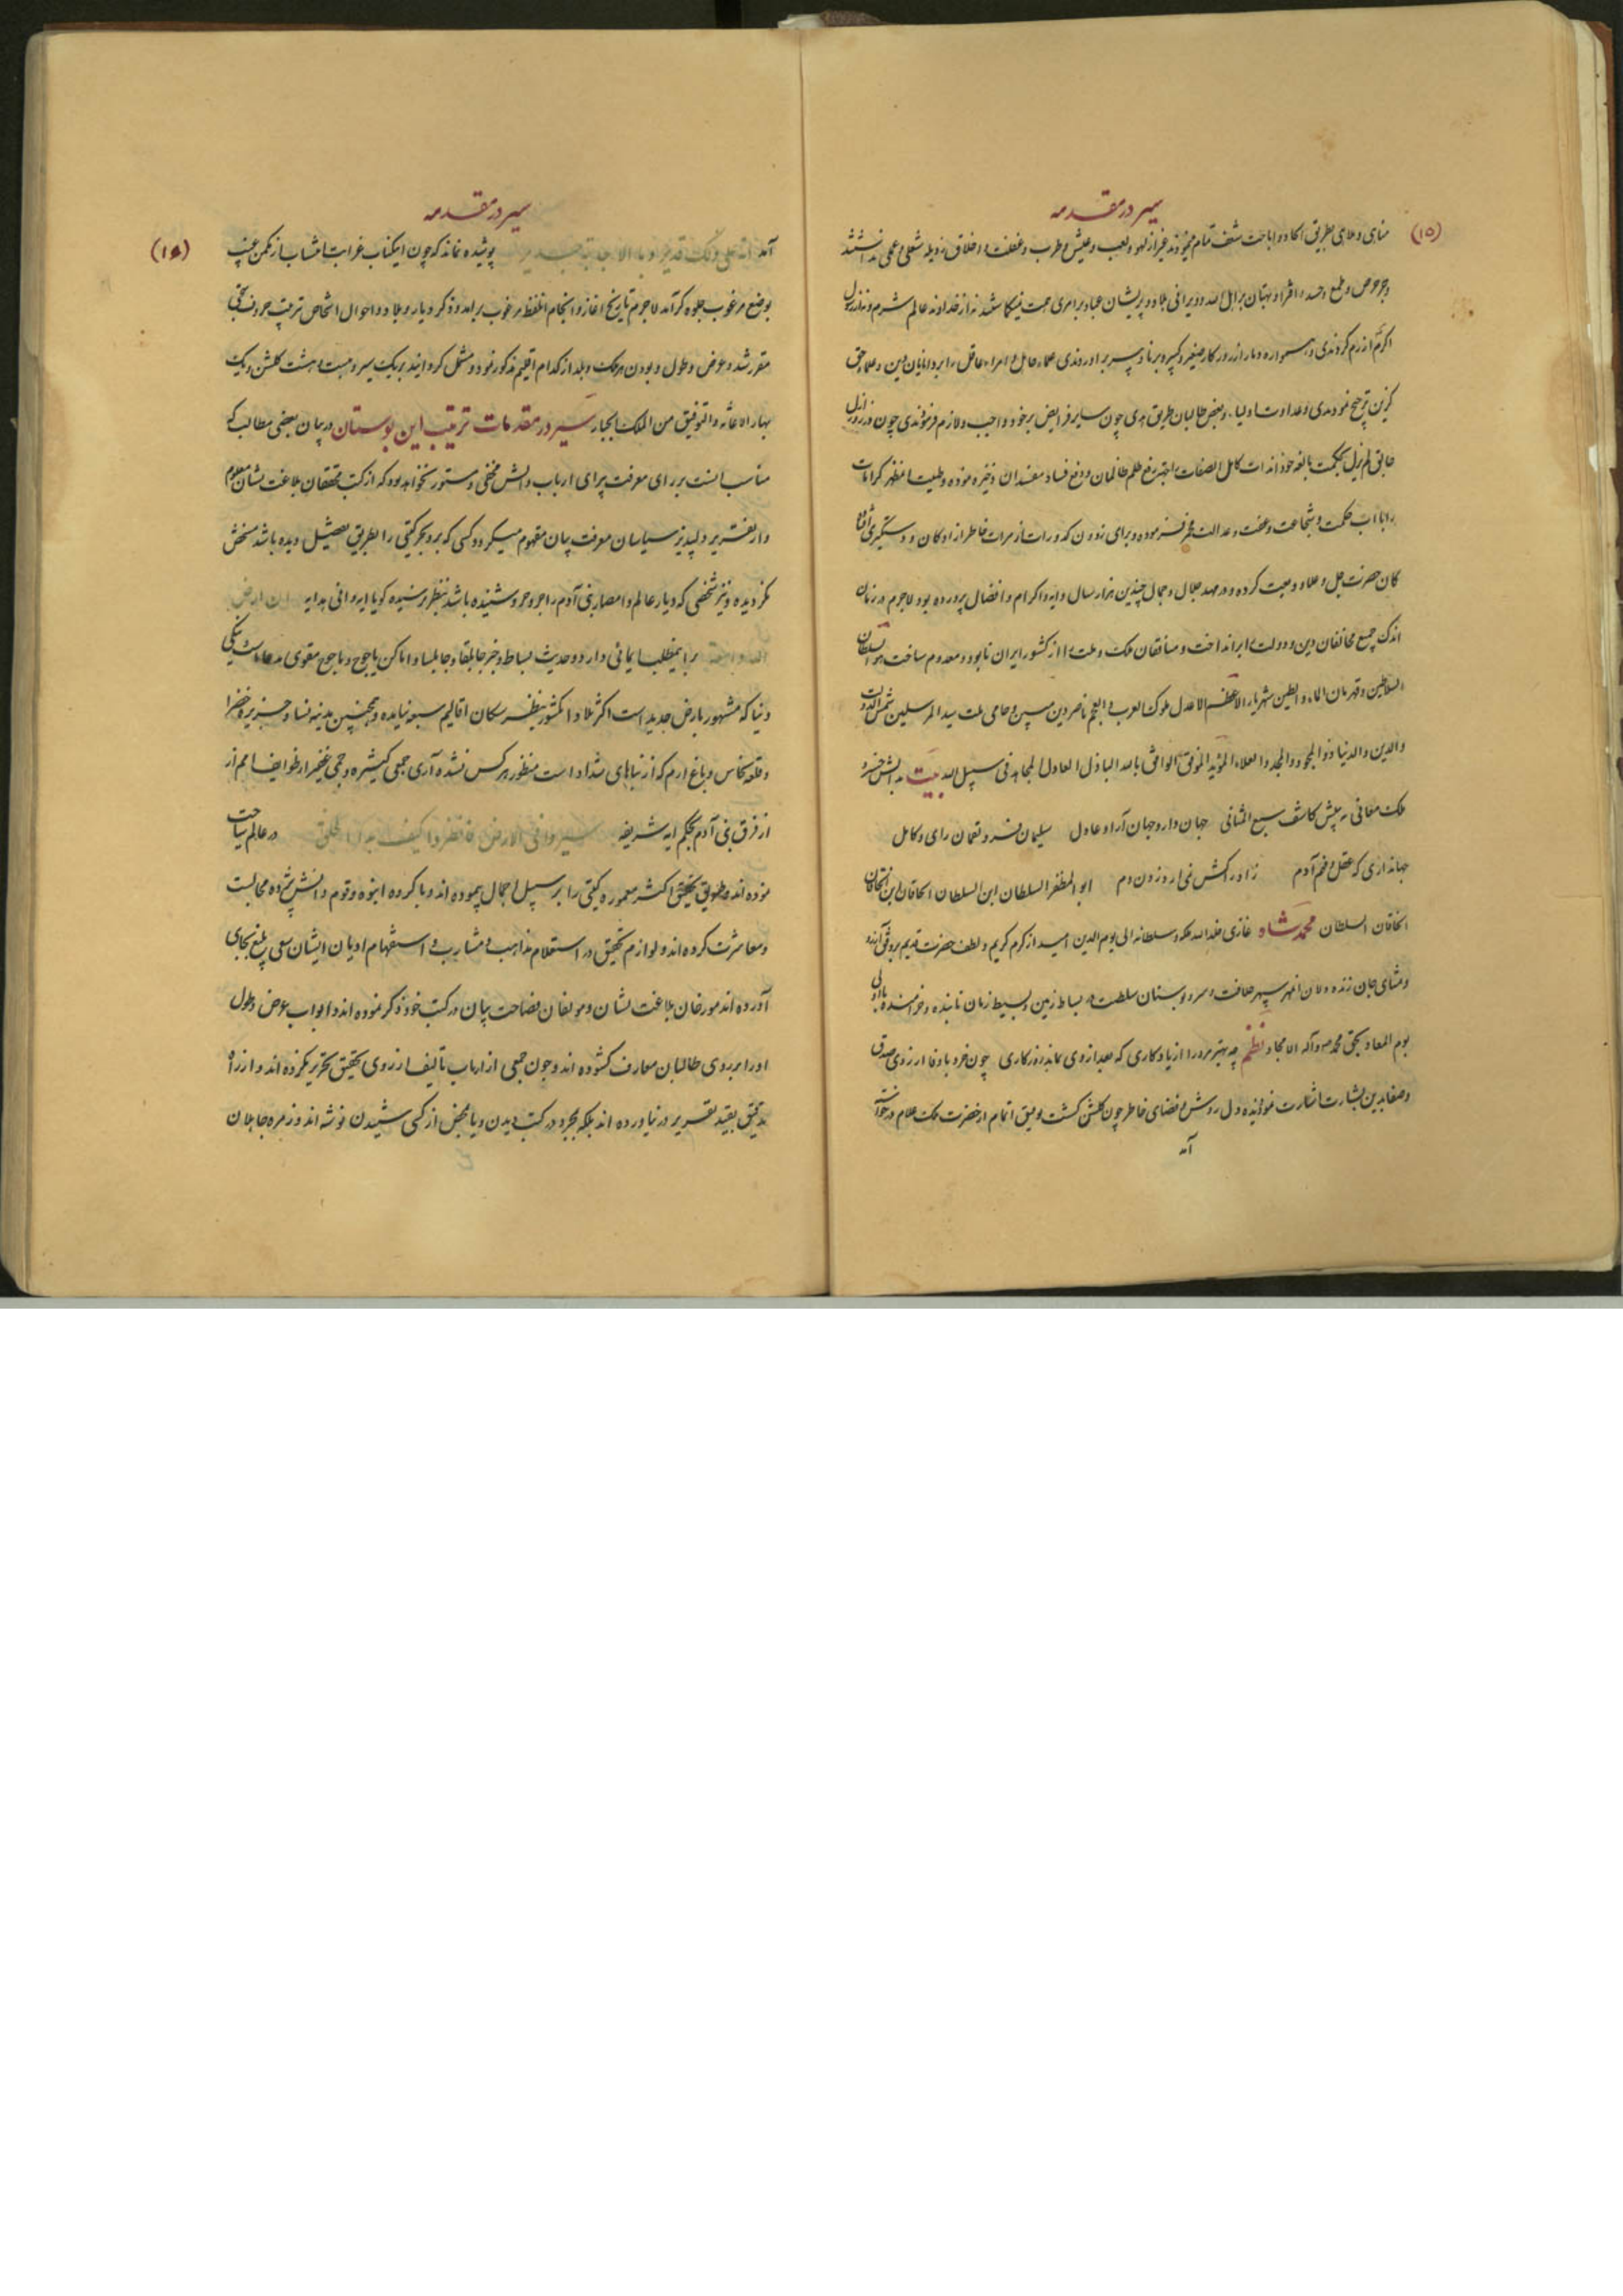 سیر در مقدمه
(۱۵)
مناهی و ملاهی بطریق الحاد و اباحت شعف تمام مینمودند غیر از لهو و لعب و عیش و طرب و غفلت و اخلاق رذیله شغلی و عملی نداشتند
و جز حرص و طمع و حسد و افترا و بهتان بر اهل الله و ویرانی بلاد و پریشانی عباد بر امری همت نمیگماشتند نه از خداوند عالم شرم و نه از رسول
اکرم آزرم کردندی و همواره دمار از روزگار صغیر و کبیر و برنا و پیر برآوردندی علماء عامل و امراء عاقل را بر دانایان دین و علماء حق
گزین ترجیح نمودندی و عداوت اولیاء و بغض طالبان طریق هدی چون سایر فرایض بر خود واجب و لازم فرمودندی چون در روز ازل
خالق لم یزل بحکمت بالغه خود آن ذات کامل الصفات را جهة رفع ظلم ظالمان و دفع فساد مفسدان ذخیره نموده و طینت مظهر کرامات
را با آب حکمت و شجاعت و عفت و عدالت مخمر فرموده و برای زدودن کدورات از مرات خاطر آزادگان و دستگیری افتاد
گان حضرت جل و علاء و دیعت کرده و در مهد جلال و جمال چندین هزار سال و ایه و اکرام و افضال پرورده بود لاجرم در زمان
اندک جمیع مخالفان دین و دولت را برانداخت و منافقان ملک و ملت را از کشور ایران نابود و معدوم ساخت هو السلطان
السلاطین و قهرمان الماء و الطین شهریار الاعظم الاعدل ملوک العرب و العجم ناصر دین مبین و حامی ملت سید المرسلین شمس الدولت
و الدین و الدنیا ذو الجود و المجد و العلاء المؤید الموفق الواثق بالله الباذل العادل المجاهد فی سبیل الله بیت به دانش خسرو
ملک معانی به بینش کاشف سبع المثانی جهان دار و جهان آرا و عادل سلیمان فر و لقمان رای و کامل
جهانداری که عقل و فهم آدم ز ادراکش نمی یارد زدن دم ابو المظفر السلطان ابن السلطان الخاقان ابن الخاقان
الخاقان السلطان محمد شاه غازی خلد الله ملکه و سلطانه الی یوم الدین امید از کرم کریم و لطف حضرت قدیم
و مشای جان زنده دلان انمهر سپهر خلافت و سرو بوستان سلطنت در بساط زمین و بسیط زمان تابنده و خرامنده باد
یوم المعاد بحق محمد و آله الامجاد نظم چه بهتر مرد را از یادگاری که بعد از وی بماند روزگاری چون خرد باوفا از روی صدق
و صفا بدین بشارت اشارت نمود بنده دل روش و فضای خاطر چون گلشن گشت توفیق اتمام از حضرت ملک علام درخواست
آمد
سیر در مقدمه
(۱۶)
آمد انه علی ذلک قدیر و بالاجابة جدیر پوشیده نماند که چون اینکتاب غرابت انتساب از مکمن غیب
بوضع مرغوب جلوه گر آمد لاجرم تاریخ آغاز و انجام انلفظ مرغوب برآمد و ذکر دیار و بلاد و احوال اشخاص بترتیب حروف تهجی
مقرر شد و عرض و طول و بودن هر ملک و بلد از کدام اقلیم مذکور نمود و مشتمل گردانید بر یک سیر و بیست و هشت گلشن و یک
بهار الاعانه و التوفیق من الملک الجبار سیر در مقدمات ترتیب این بوستان در بیان بعضی مطالب که
مناسب است بر رای معرفت پیرای ارباب دانش مخفی و مستور نخواهد بود که از کتب محققان بلاغت نشان معلوم
و از تقریر دلپذیر سیاحان معرفت بیان مفهوم میگردد کسی که بر و بحر گیتی را بطریق تفصیل دیده باشد منخش
نگردیده و نیز شخصی که دیار عالم و امصار بنی آدم را جزو جزو شنیده باشد بنظر نرسیده گویا ایه وافی هدایه ان ارض
الله واسعة بر اینمطلب ایمائی دارد و حدیث بساط و خبر جابلقا و جابلسا و اماکن یاجوج و ماجوج مقوی مدعاست ینکی
دنیا که مشهور بارض جدید است اکثر بلاد انکشور بنظر سکان اقالیم سبعه نیامده و همچنین مدینه نساء و جزیره خضرا
و قلعه نحاس و باغ ارم که از بناهای شداد است منظور هر کس نشده آری جمعی کثیره و جمی غفیر از طوایف امم از
از فرق بنی آدم بحکم ایه شریفه سیروا فی الارض فانظروا کیف بدا الخلق در عالم سیاحت
نموده اند و بطریق تحقیق اکثر معموره گیتی را بر سبیل اجمال پیموده اند و با گروه انبوه و قوم دانش پژوه مجالست
و معاشرت کرده اند و لوازم تحقیق در استعلام مذاهب و مشارب و استفهام ادیان ایشان سعی بلیغ بجای
آورده اند مورخان بلاغت نشان و مولفان فصاحت بیان در کتب خود ذکر نموده اند و ابواب عرض و طول
اورا بر روی طالبان معارف گشوده اند و چون جمعی از ارباب تألیف از روی تحقیق تحریر نکرده اند و از راه
تدقیق بقید تقریر در نیاورده اند بلکه بمجرد در کتب دیدن و یا محض از کسی شنیدن نوشته اند و زمره جاهلان